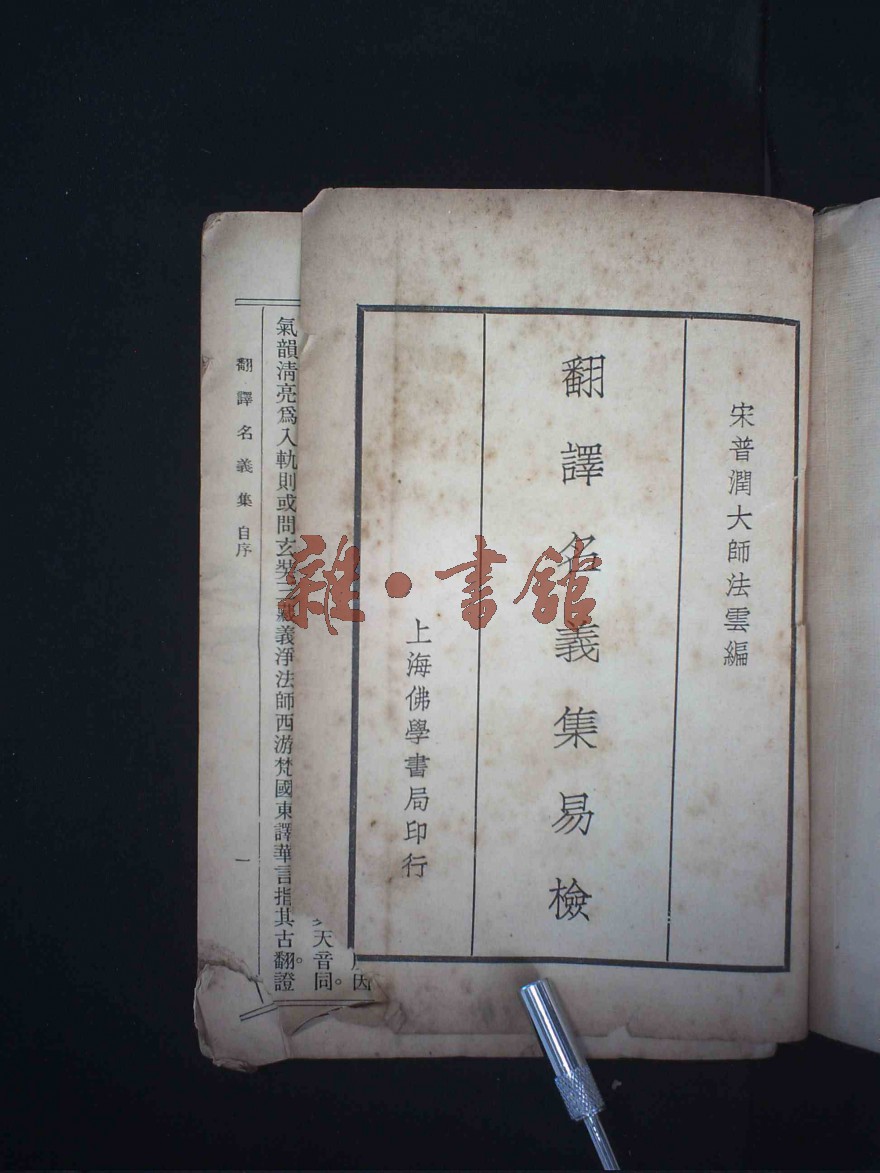 宋普潤大師法雲編
翻譯名義集易檢
上海佛學書局印行
雜·書館
因
天音同。
氣韻清亮爲入軌則或問玄奘三藏義淨法師西游梵國東譯華言指其古翻。證
翻譯名義集 自序
一